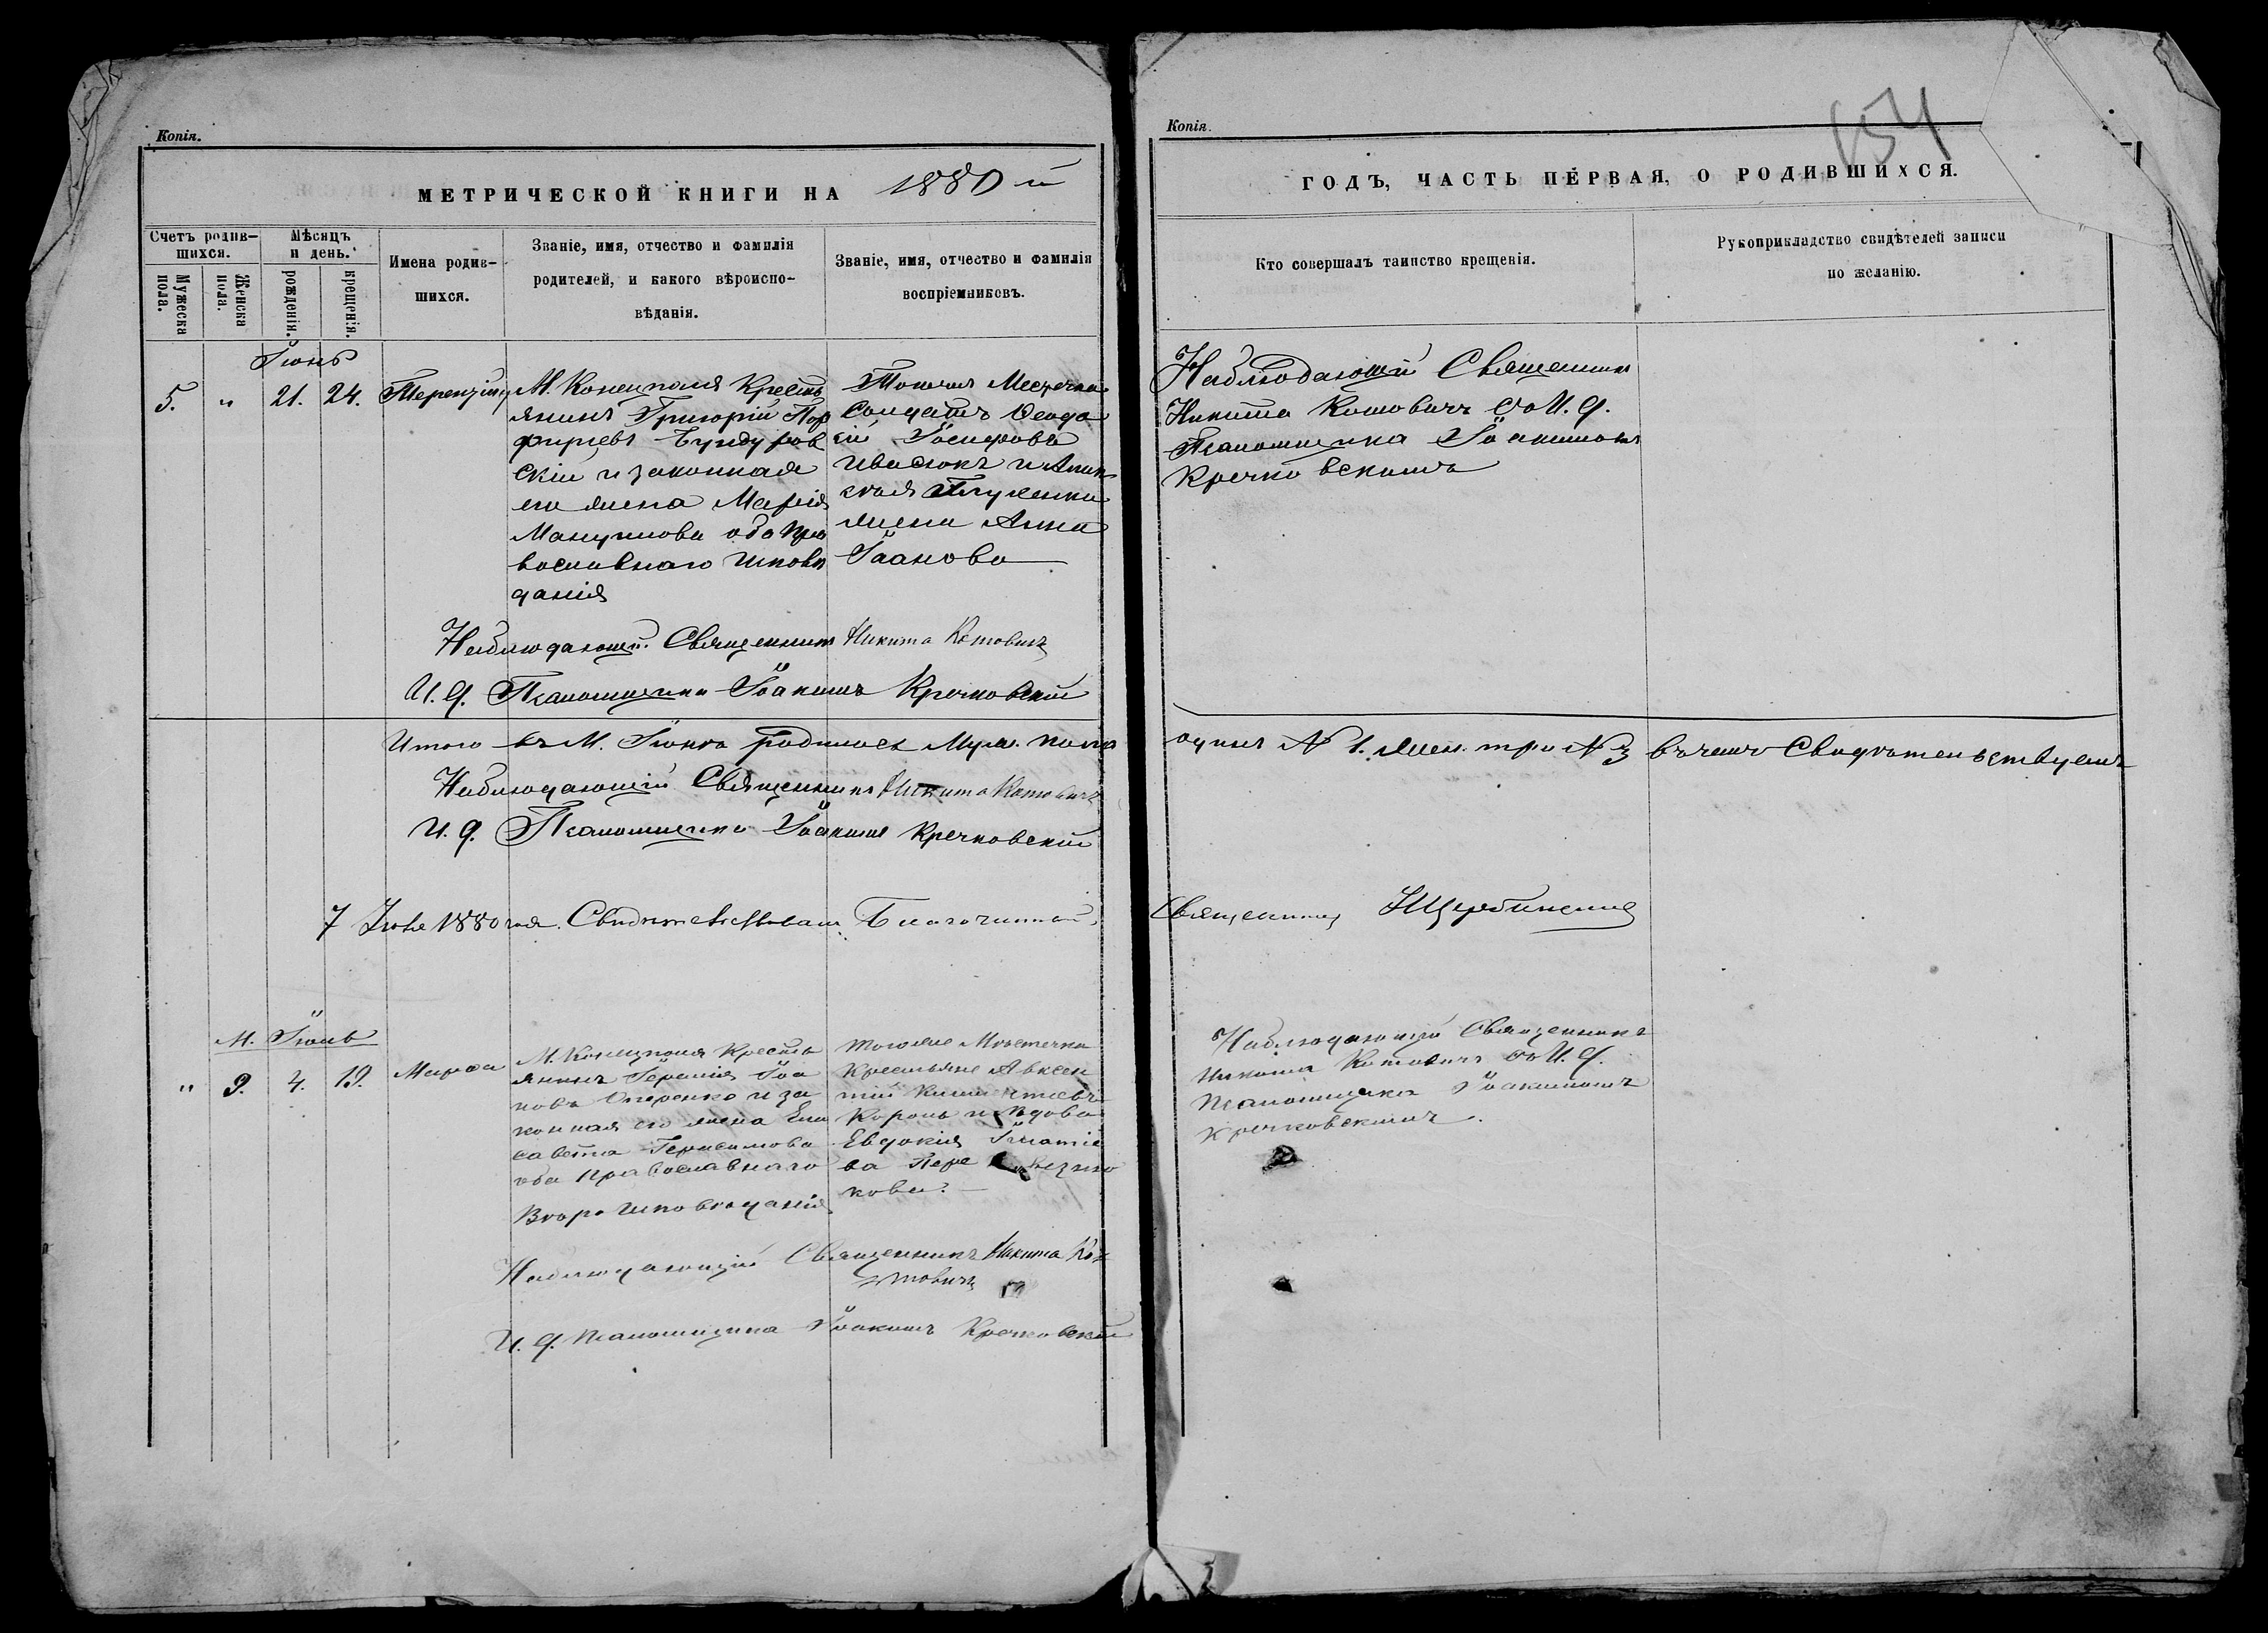 Копія.
МЕТРИЧЕСКОЙ КНИГИ НА 1880 й
Счетъ родив-
шихся.
Мужеска
пола.
Женска
пола.
Мѣсяцъ
и день.
рожденія.
крещенія.
Имена родив-
шихся.
Званіе, имя, отчество и фамилія
родителей, и какого вѣроиспо-
вѣданія.
Званіе, имя, отчество и фамилія
воспріемниковъ.
Іюнь
5. " 21. 24. Терентій
М. Конецполя Кресть
янинъ Григорій Пор
фиріевъ
скій и законная
его жена Марія
оба пра
вославнаго исповѣ
данія
Тогожъ Местечка
Солдатъ Феодо
сій Іосифовъ
Ивасюкъ и
жена Анна
Іоанова
Наблюдающій Священникъ Никита Котовичъ
И. д. Псаломщика Іоакимъ Кречковскій
Итого въ М. Іюнѣ родилось Муж. пола
Наблюдающій Священникъ Никита Котовичъ
И. д. Псаломщика Іоакимъ Кречковскій
7 Іюля 1880 года. Свидѣтельствовалъ Благочинный
М. Іюль
" 9. 4. 13. Марфа
М. Конецполя Кресть
янинъ Іеремія Іоа
новъ Опаренко и за
конная его жена Ели
савета Герасимова
оба Православнаго
Вѣроисповѣданія
Тогоже Мѣстечка
Крестьяне Авксен
тій
Король и вдова
Евдокія Игнатіе
ва
кова.
Наблюдающій Священникъ Никита Ко
товичъ
И. д. Псаломщика Іоакимъ Кречковскій
Копія.
654
ГОДЪ, ЧАСТЬ ПЕРВАЯ, О РОДИВШИХСЯ.
Кто совершалъ таинство крещенія.
Рукоприкладство свидѣтелей записи
по желанію.
Наблюдающій Священникъ
Никита Котовичъ съ И. д.
Псаломщика Іоакимомъ
Кречковскимъ
одинъ № 1. жен. три № 3 въ чемъ Свидѣтельствуемъ
Священникъ
Наблюдающій Священникъ
Никита Котовичъ съ И. д.
Псаломщика Іоакимомъ
Кречковскимъ.